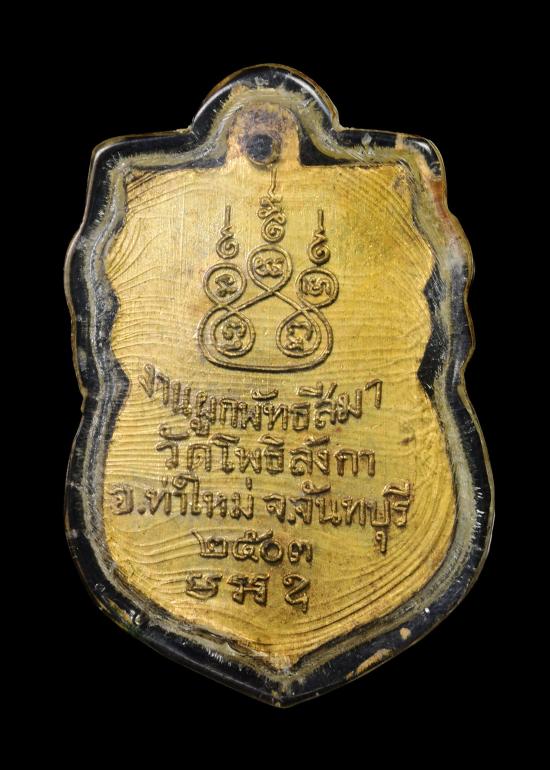 งานผูกพัทธสีมา
วัดโพธิลังกา
อ.ท่าใหม่ จ.จันทบุรี
๒๕๐๓